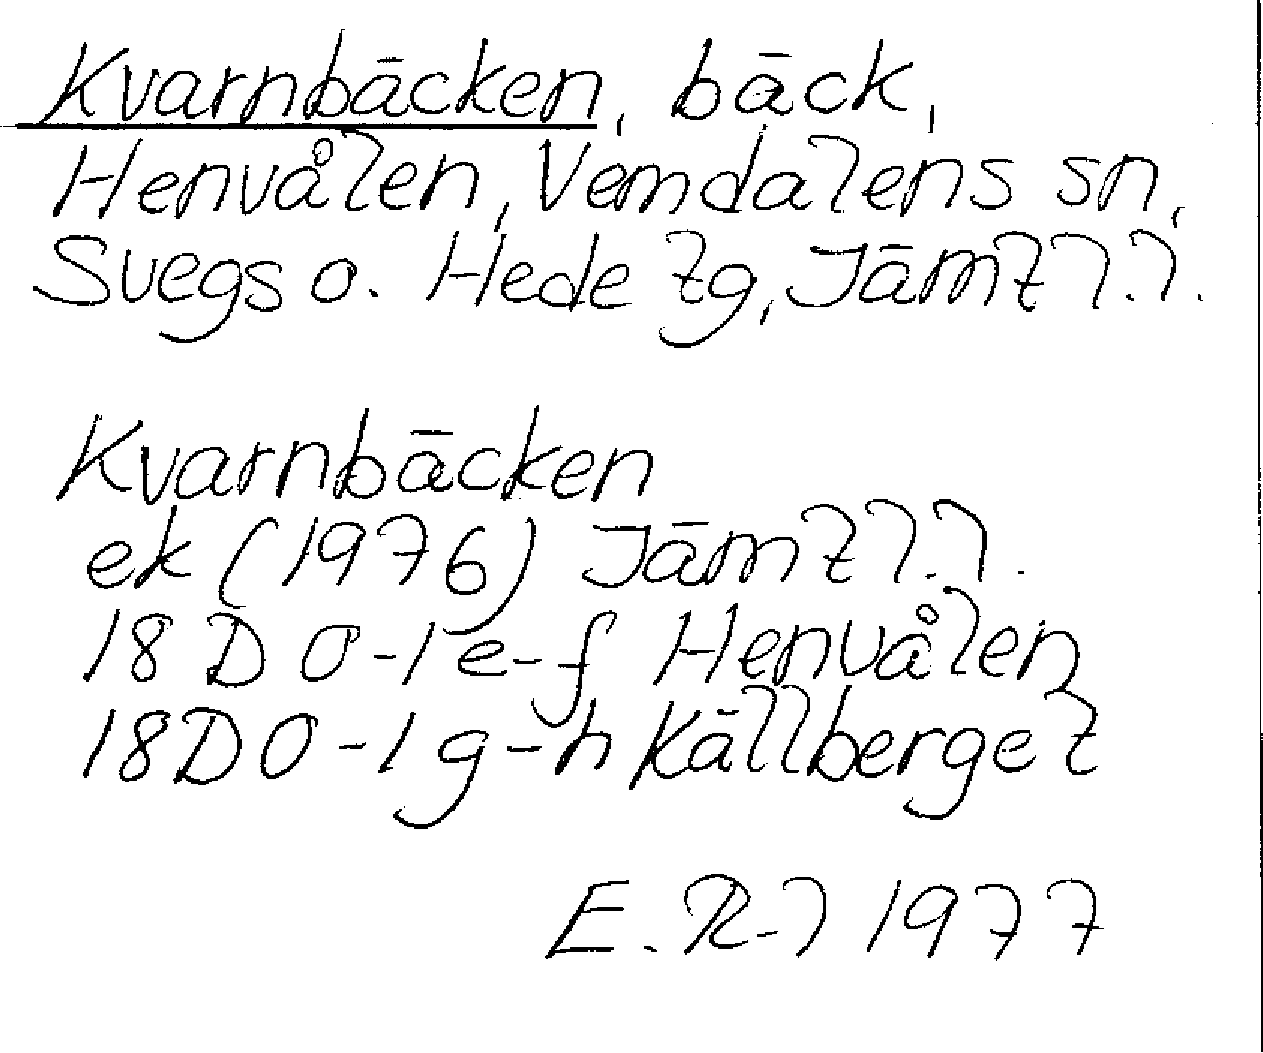 Kvarnbäcken, bäck,
Henvålen, Vemdalens sn,
Svegs o. Hede tg, Jämtl.l.
Kvarnbäcken
ek (1976) Jämtl.l.
18 D 0-1 e-f Henvålen
18D 0-1 g-h Källberget
E. R-l 1977